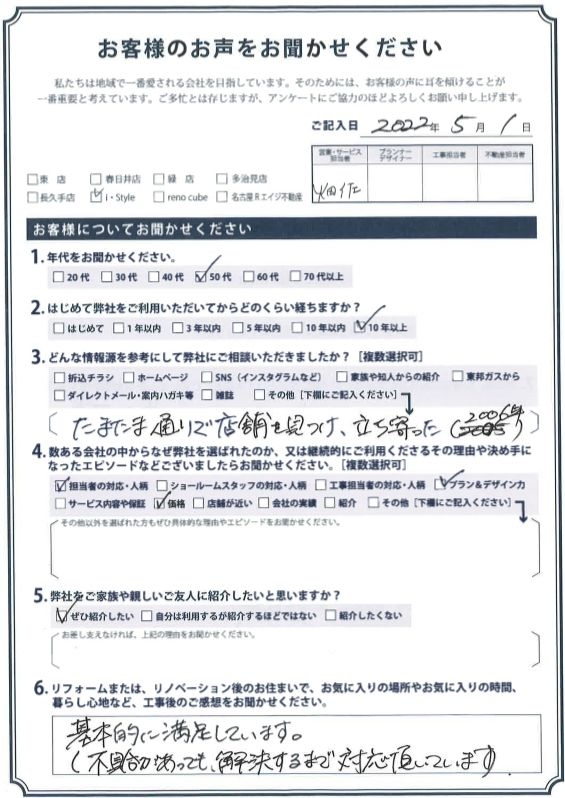 お客様のお声をお聞かせください
私たちは地域で一番愛される会社を目指しています。そのためには、お客様の声に耳を傾けることが
一番重要と考えています。ご多忙とは存じますが、アンケートにご協力のほどよろしくお願い申し上げます。
ご記入日 2022年 5月 1日
営業・サービス担当者 プランナーデザイナー 工事担当者 不動産担当者
□東 店 □春日井店 □緑 店 □多治見店
□長久手店 ☑i・Style □reno cube □名古屋Rエイジ不動産
お客様についてお聞かせください
1. 年代をお聞かせください。
□20代 □30代 □40代 ☑50代 □60代 □70代以上
2. はじめて弊社をご利用いただいてからどのくらい経ちますか？
□はじめて □1年以内 □3年以内 □5年以内 □10年以内 ☑10年以上
3. どんな情報源を参考にして弊社にご相談いただきましたか？［複数選択可］
□折込チラシ □ホームページ □SNS（インスタグラムなど） □家族や知人からの紹介 □東邦ガスから
□ダイレクトメール・案内ハガキ等 □雑誌 □その他［下欄にご記入ください］
たまたま通りで店舗を見つけ、立ち寄った（2006年）
4. 数ある会社の中からなぜ弊社を選ばれたのか、又は継続的にご利用くださるその理由や決め手に
なったエピソードなどございましたらお聞かせください。［複数選択可］
☑担当者の対応・人柄 □ショールームスタッフの対応・人柄 □工事担当者の対応・人柄 ☑プラン＆デザイン力
□サービス内容や保証 ☑価格 □店舗が近い □会社の実績 □紹介 □その他［下欄にご記入ください］
その他以外を選ばれた方もぜひ具体的な理由やエピソードをお聞かせください。
5. 弊社をご家族や親しいご友人に紹介したいと思いますか？
☑ぜひ紹介したい □自分は利用するが紹介するほどではない □紹介したくない
お差し支えなければ、上記の理由をお聞かせください。
6. リフォームまたは、リノベーション後のお住まいで、お気に入りの場所やお気に入りの時間、
暮らし心地など、工事後のご感想をお聞かせください。
基本的に満足しています。
（不具合があっても、解決するまで対応頂いています